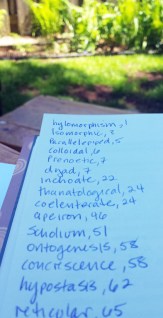 hylomorphism, 1
Isomorphic, 2
Parallelepiped, 5
Colloidal, 6
Pronoetic, 7
dryad, 7
inchoate, 22
thanatological, 24
coelenterate, 24
apeiron, 46
Scholium, 51
ontogenesis, 58
concrescence, 58
hypostasis, 62
reticular, 65